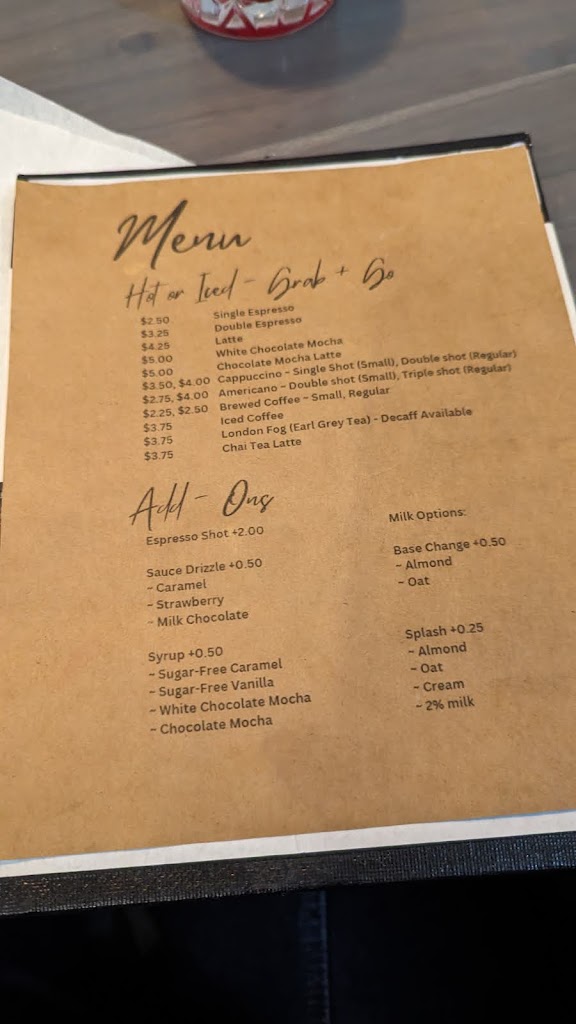 Menu
Hot or Iced - Grab + Go
$2.50 Single Espresso
$3.25 Double Espresso
$4.25 Latte
$5.00 White Chocolate Mocha
$5.00 Chocolate Mocha Latte
$3.50, $4.00 Cappuccino - Single Shot (Small), Double shot (Regular)
$2.75, $4.00 Americano - Double shot (Small), Triple shot (Regular)
$2.25, $2.50 Brewed Coffee - Small, Regular
$3.75 Iced Coffee
$3.75 London Fog (Earl Grey Tea) - Decaff Available
$3.75 Chai Tea Latte
Add - Ons
Espresso Shot +2.00
Sauce Drizzle +0.50
~ Caramel
~ Strawberry
~ Milk Chocolate
Syrup +0.50
~ Sugar-Free Caramel
~ Sugar-Free Vanilla
~ White Chocolate Mocha
~ Chocolate Mocha
Milk Options:
Base Change +0.50
~ Almond
~ Oat
Splash +0.25
~ Almond
~ Oat
~ Cream
~ 2% milk